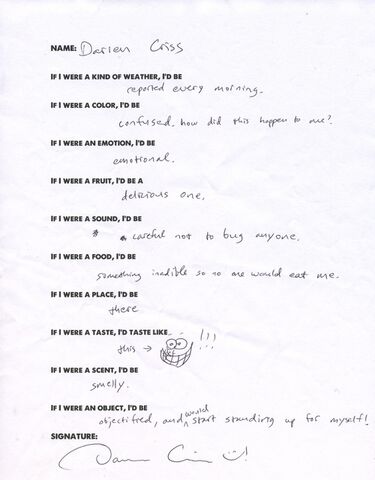 NAME: Darren Criss
IF I WERE A KIND OF WEATHER, I'D BE
reported every morning.
IF I WERE A COLOR, I'D BE
confused, how did this happen to me?
IF I WERE AN EMOTION, I'D BE
emotional.
IF I WERE A FRUIT, I'D BE A
delicious one.
IF I WERE A SOUND, I'D BE
careful not to bug anyone.
IF I WERE A FOOD, I'D BE
something inedible so no one would eat me.
IF I WERE A PLACE, I'D BE
there
IF I WERE A TASTE, I'D TASTE LIKE
this → !!!
IF I WERE A SCENT, I'D BE
smelly.
IF I WERE AN OBJECT, I'D BE
objectified, and would start standing up for myself!
SIGNATURE:
Darren Criss